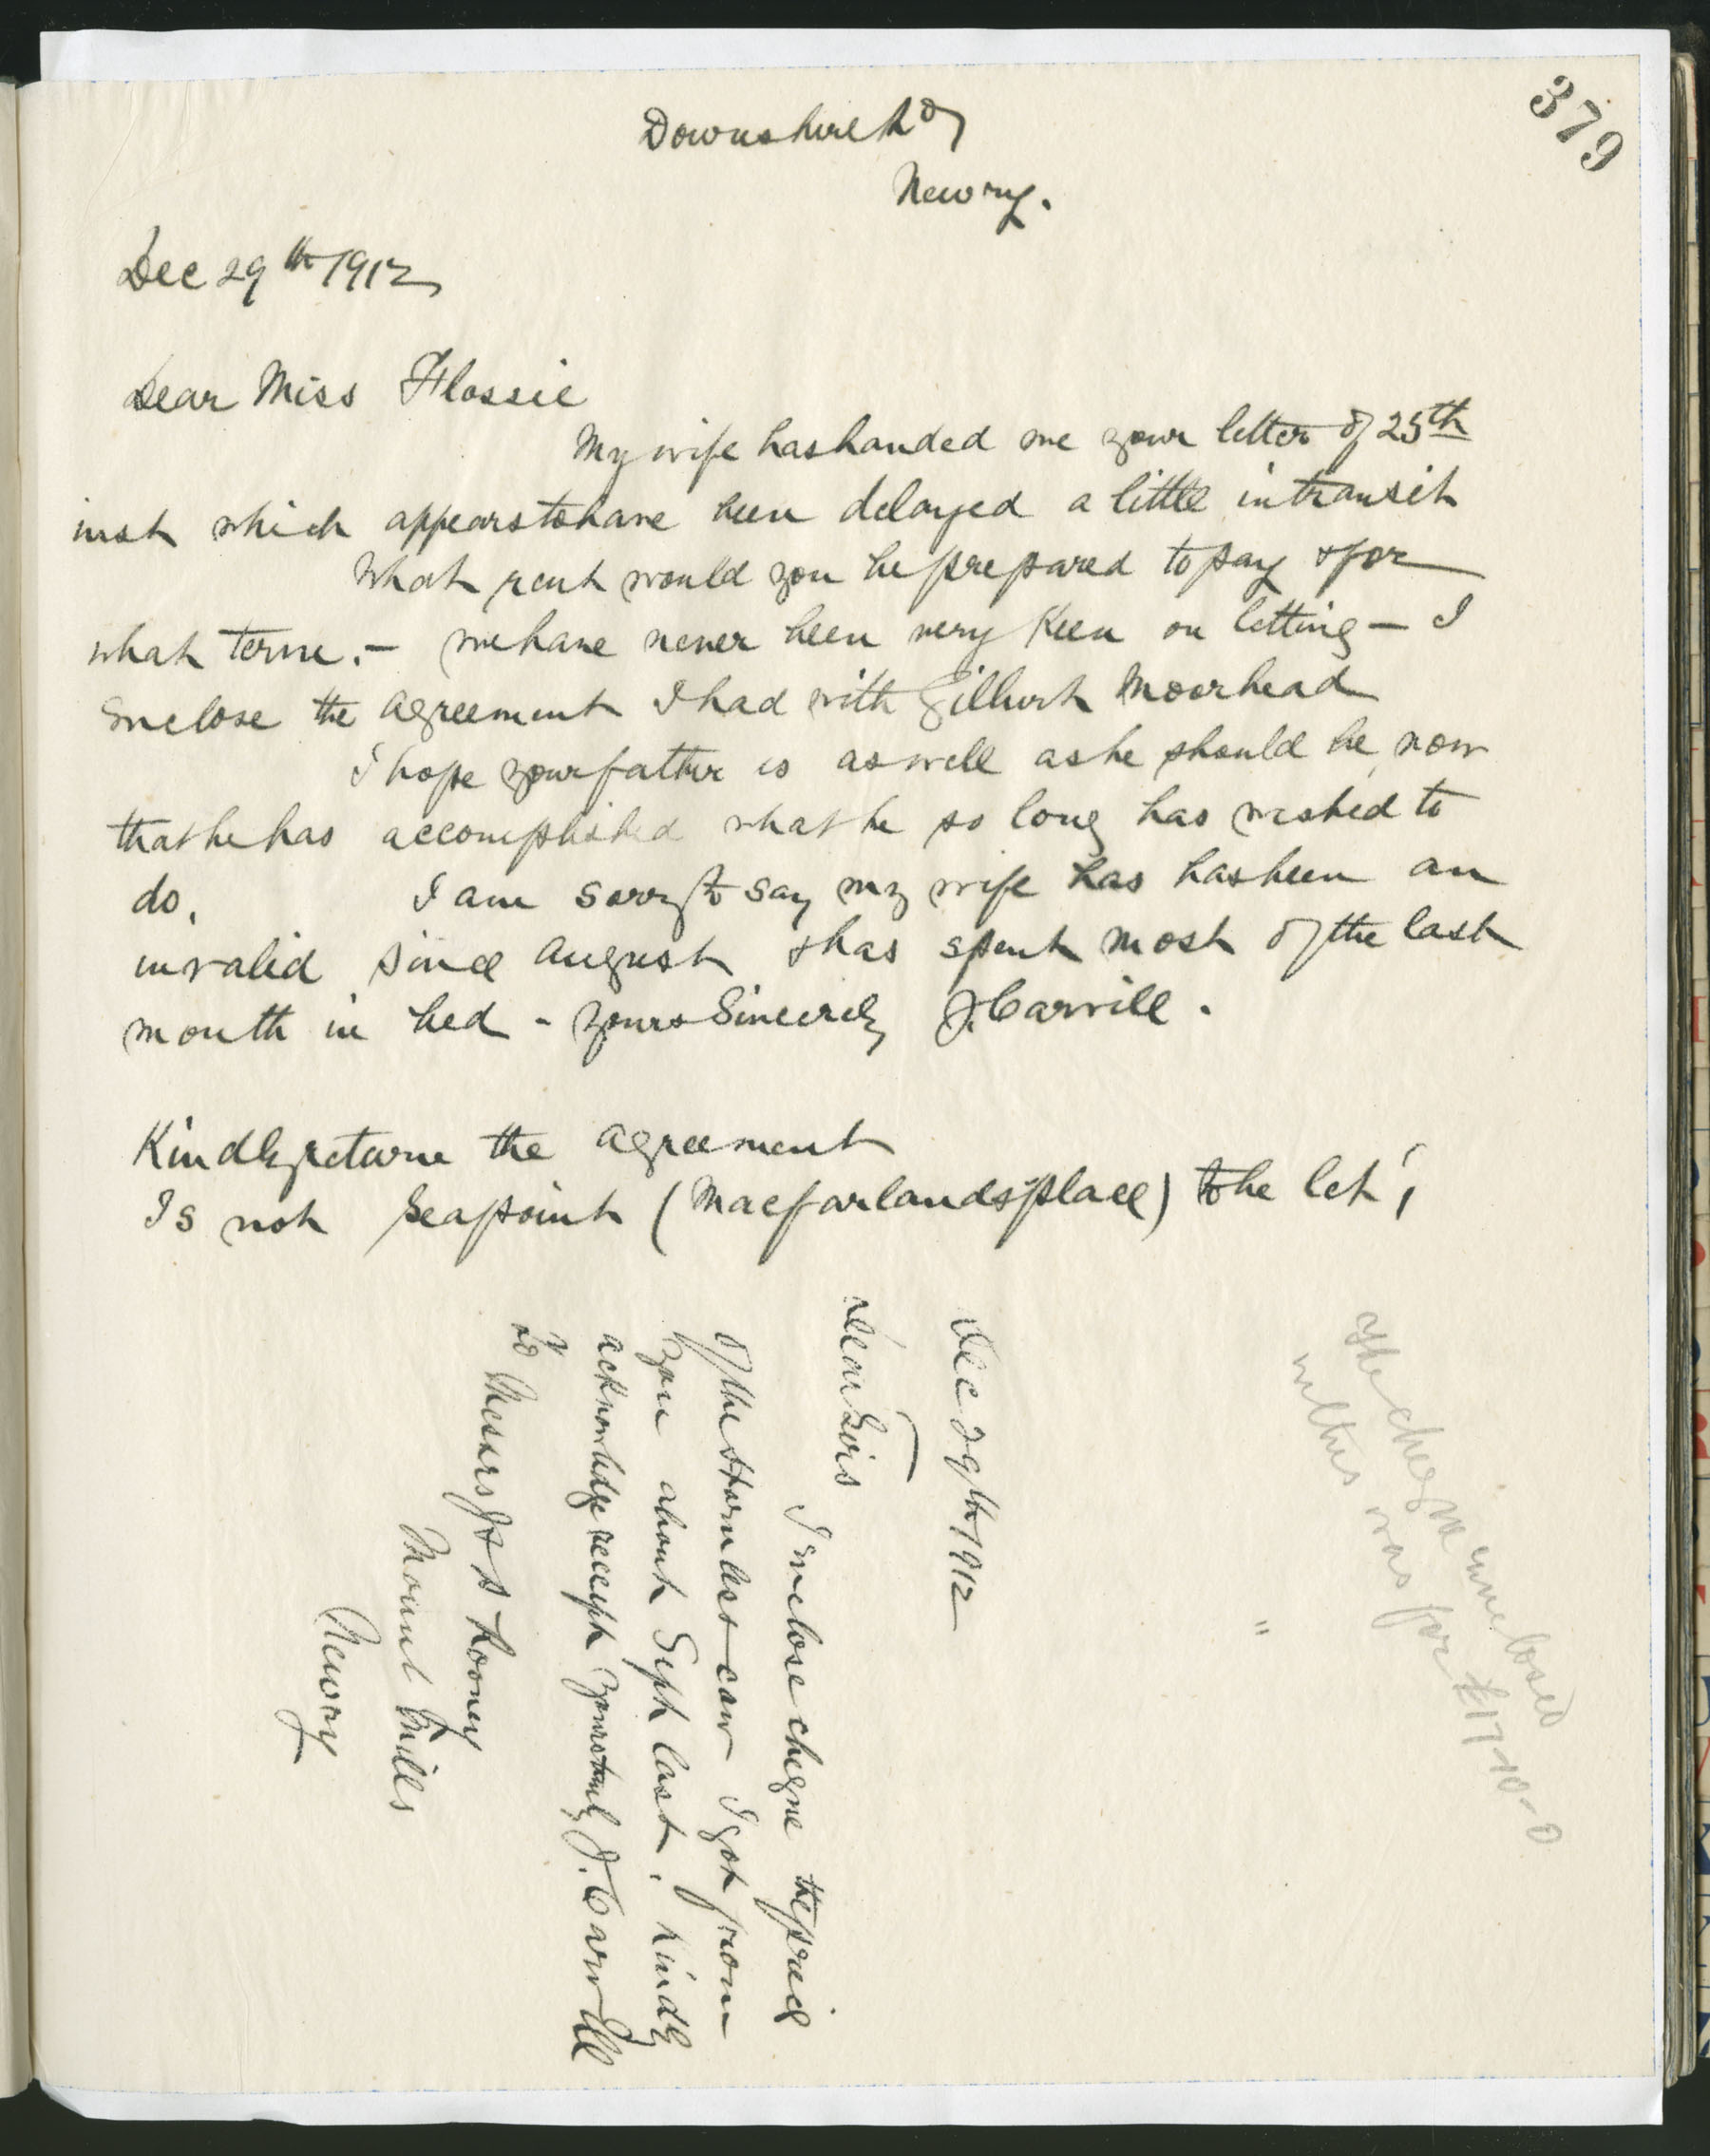 379
Downshire Rd
Newry.
Dec 29th 1912
Dear Miss Flossie
My wife has handed me your letter of 25th
inst which appears to have been delayed a little in transit
What rent would you be prepared to pay & for
what term. - we have never been very keen on letting - I
enclose the agreement I had with Gilbert Moorhead
I hope your father is as well as he should be now
that he has accomplished what he so long has wished to
do. I am sorry to say my wife has has been an
invalid since August & has spent most of the last
month in bed - yours sincerely J. Carvill.
Kindly return the agreement
Is not Seapoint (Macfarlands place) to be let?
Dec 29th 1912
Dear Sirs
I enclose cheque the price
of the Hornless cow I got from
you about Sept last. Kindly
acknowledge receipt yours truly J. Carvill
To Messrs J & S Rooney
Mount Mills
Newry
The cheque inclosed
in this was for £17-10-0
"